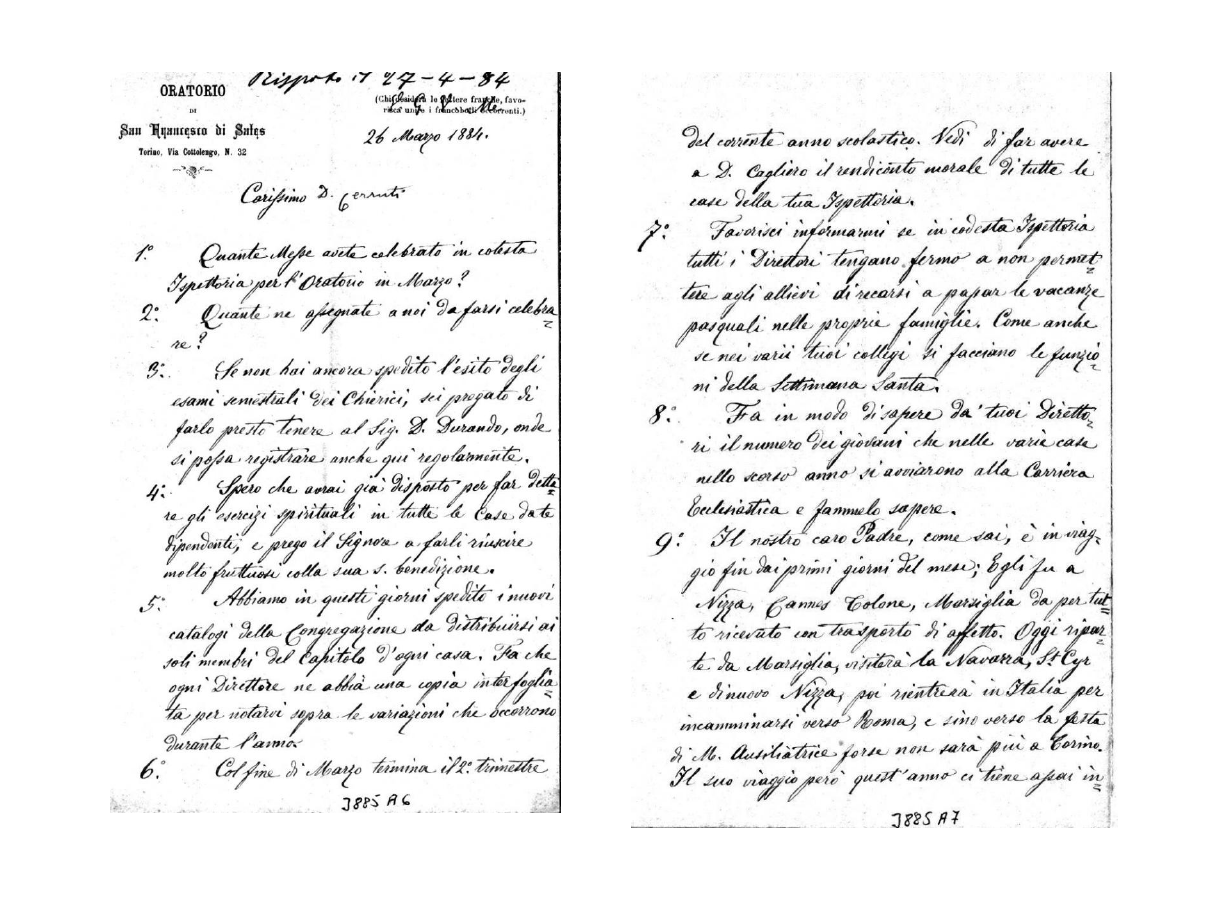 Risposto il 27-4-84
ORATORIO
DI
San Francesco di Sales
Torino, Via Cottolengo, N. 32
(Chi desidera le lettere franche, favo-
risca unire i francobolli occorrenti.)
26 Marzo 1884.
Carissimo D. Cerruti
1.° Quante Messe avete celebrato in cotesta
Ispettoria per l'Oratorio in Marzo?
2.° Quante ne assegnate a noi da farsi celebra=
re?
3.° Se non hai ancora spedito l'esito degli
esami semestrali dei Chierici, sei pregato di
farlo presto tenere al Sig. D. Durando, onde
si possa registrare anche qui regolarmente.
4.° Spero che avrai già disposto per far detta=
re gli esercizi spirituali in tutte le Case da te
dipendenti, e prego il Signore a farli riuscire
molto fruttuosi colla sua s. benedizione.
5.° Abbiamo in questi giorni spedito i nuovi
catalogi della Congregazione da distribuirsi ai
soli membri del Capitolo d'ogni casa. Fa che
ogni Direttore ne abbia una copia interfoglia=
ta per notarvi sopra le variazioni che occorrono
durante l'anno.
6.° Col fine di Marzo termina il 2.° trimestre
J885 A6
del corrente anno scolastico. Vedi di far avere
a D. Cagliero il rendiconto morale di tutte le
case della tua Ispettoria.
7.° Favorisci informarmi se in codesta Ispettoria
tutti i Direttori tengano fermo a non permet=
tere agli allievi di recarsi a passar le vacanze
pasquali nelle proprie famiglie. Come anche
se nei varii tuoi collegi si facciano le funzio=
ni della Settimana Santa.
8.° Fa in modo di sapere da' tuoi Diretto=
ri il numero dei giovani che nelle varie case
nello scorso anno si avviarono alla Carriera
Ecclesiastica e fammelo sapere.
9.° Il nostro caro Padre, come sai, è in viag=
gio fin dai primi giorni del mese; Egli fu a
Nizza, Cannes Tolone, Marsiglia da per tut=
to ricevuto con trasporto di affetto. Oggi ripar=
te da Marsiglia, visiterà la Navarra, St Cyr
e di nuovo Nizza, poi rientrerà in Italia per
incamminarsi verso Roma, e sino verso la festa
di M. Ausiliatrice forse non sarà più a Torino.
Il suo viaggio però quest'anno ci tiene assai in=
J885 A7